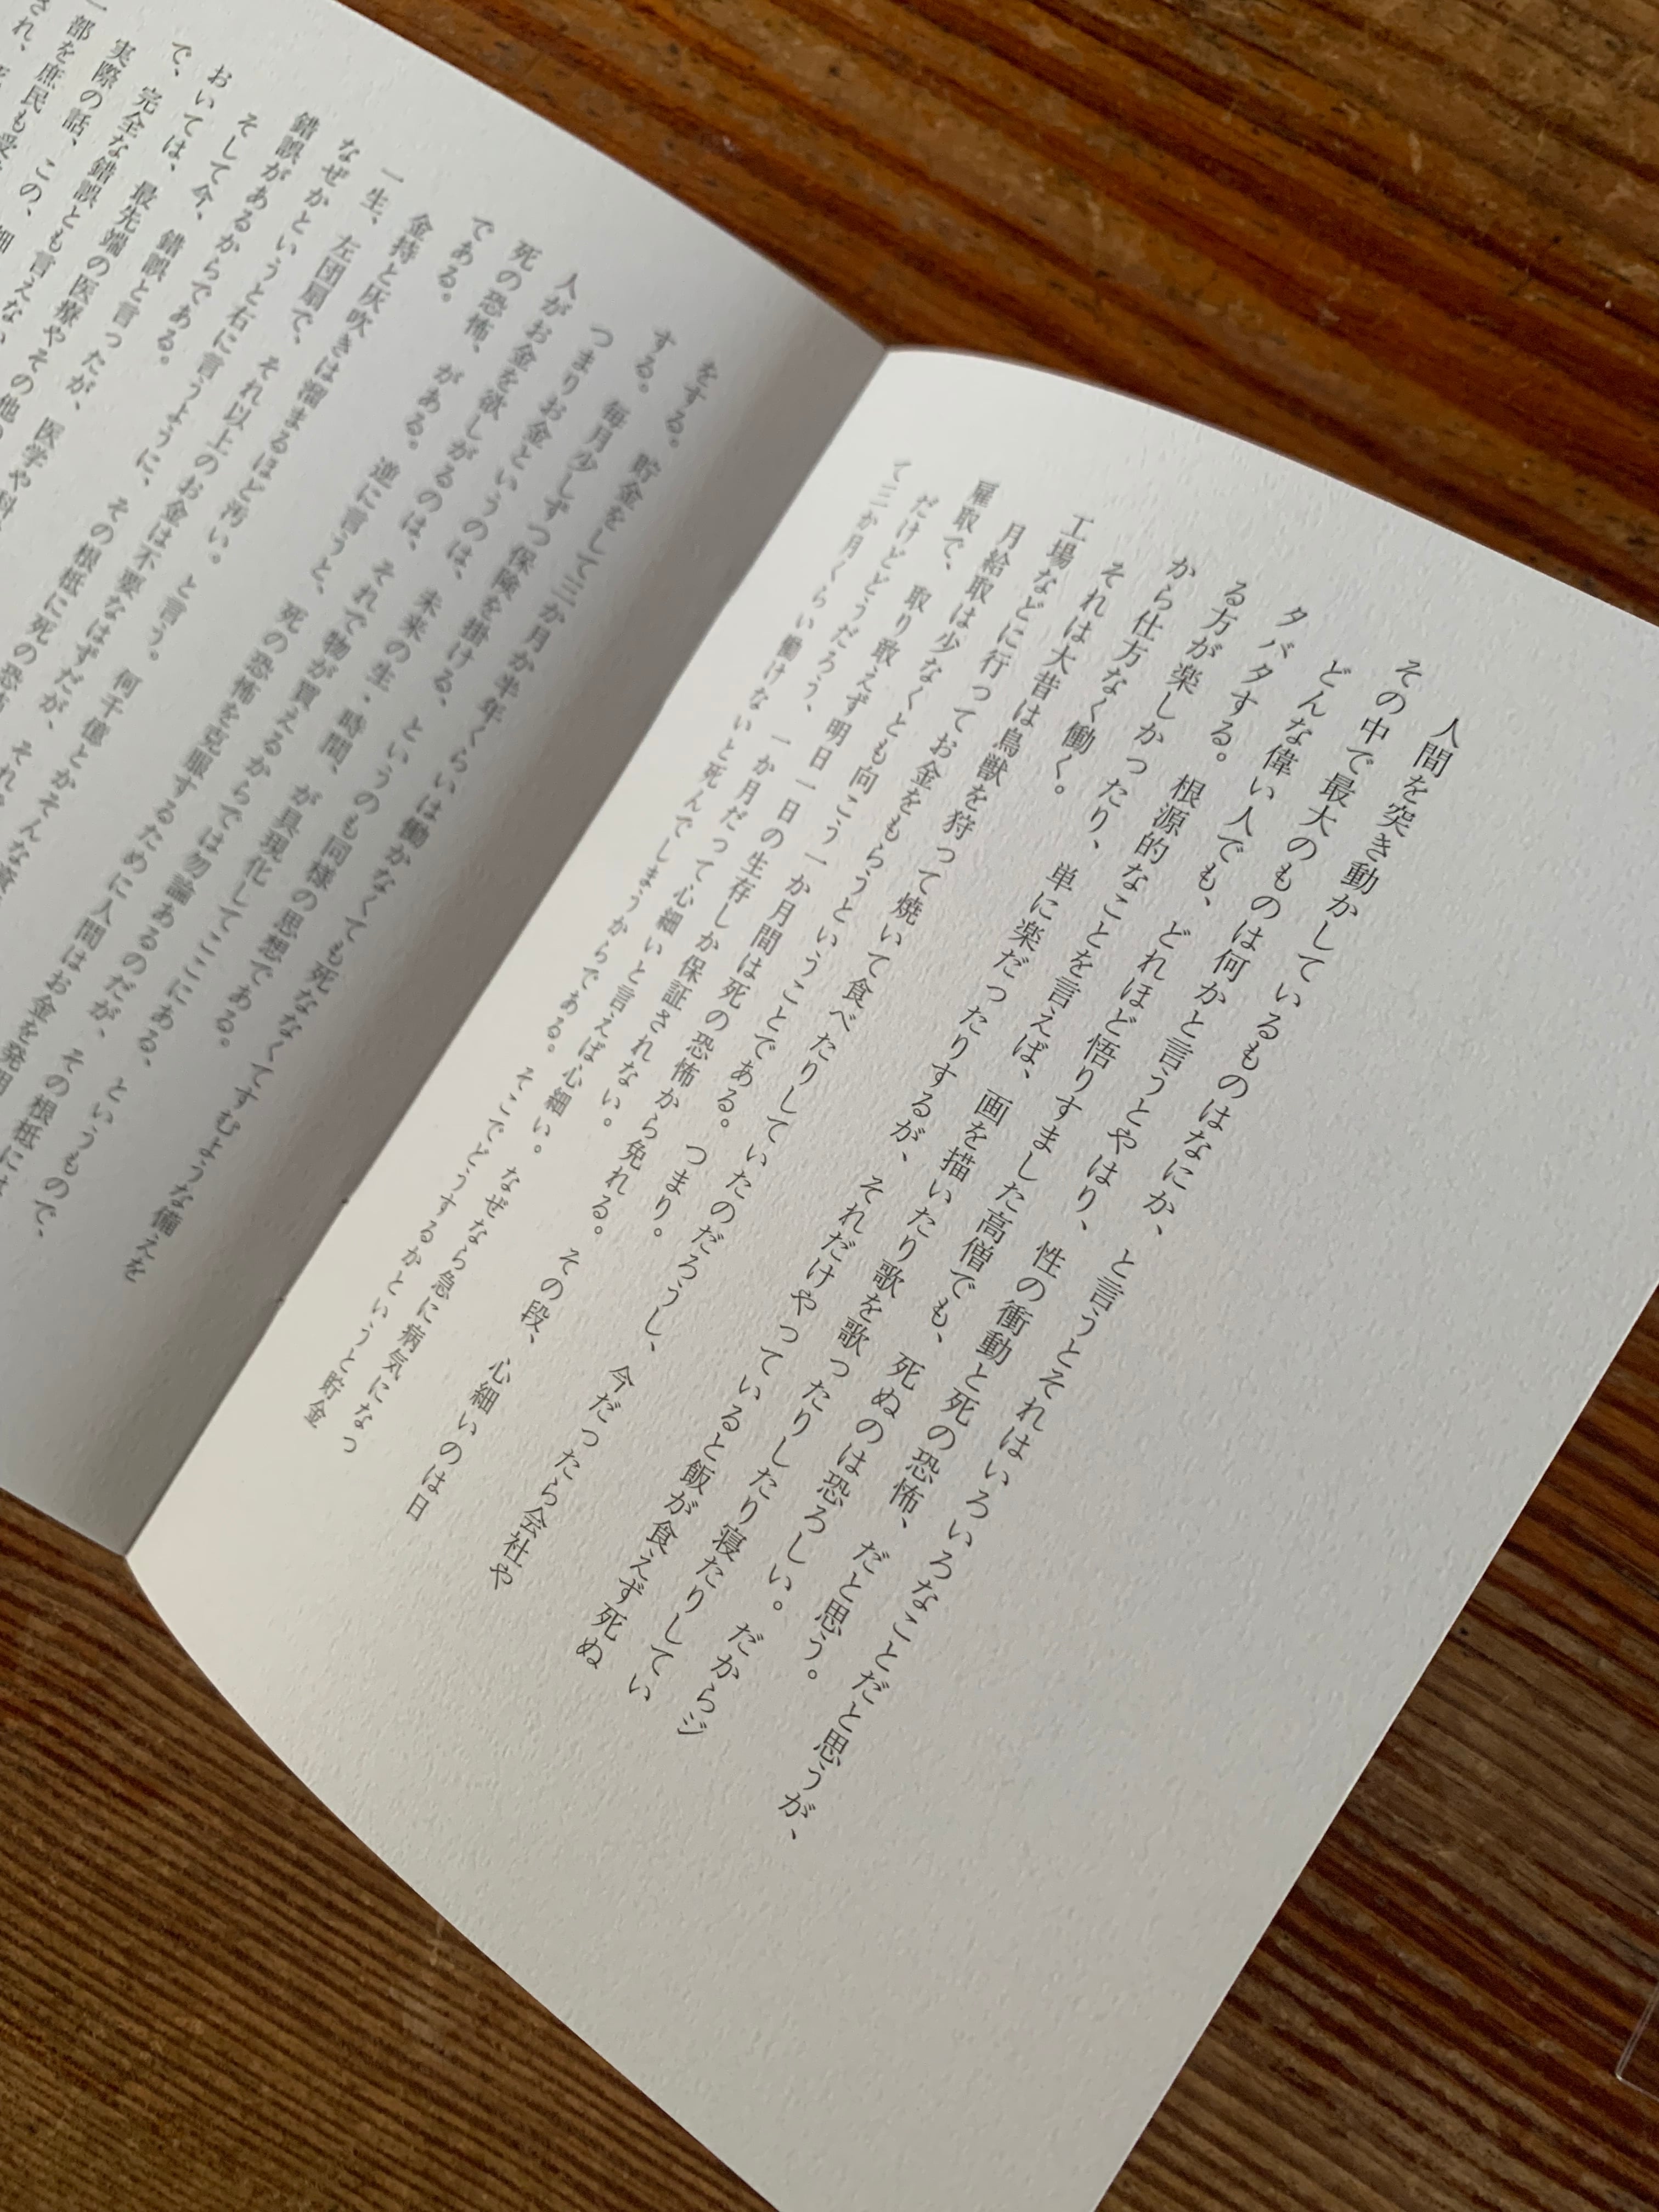 人間を突き動かしているものはなにか、と言うとそれはいろいろなことだと思うが、
その中で最大のものは何かと言うとやはり、性の衝動と死の恐怖、だと思う。
どんな偉い人でも、どれほど悟りすました高僧でも、死ぬのは恐ろしい。だからジ
タバタする。根源的なことを言えば、画を描いたり歌を歌ったりしたり寝たりしてい
る方が楽しかったり、単に楽だったりするが、それだけやっていると飯が食えず死ぬ
から仕方なく働く。
それは大昔は鳥獣を狩って焼いて食べたりしていたのだろうし、今だったら会社や
工場などに行ってお金をもらうということである。つまり。
月給取は少なくとも向こう一か月間は死の恐怖から免れる。その段、心細いのは日
雇取で、取り敢えず明日一日の生存しか保証されない。
だけどどうだろう、一か月だって心細いと言えば心細い。なぜなら急に病気になっ
て三か月くらい働けないと死んでしまうからである。そこでどうするかというと貯金
をする。貯金をして三か月か半年くらいは働かなくても死ななくてすむような備えを
する。毎月少しずつ保険を掛ける、というのも同様の思想である。
つまりお金というのは、未来の生・時間、が具現化してここにある、というもので、
人がお金を欲しがるのは、それで物が買えるからでは勿論あるのだが、その根柢には
死の恐怖、がある。逆に言うと、死の恐怖を克服するために人間はお金を発明
である。
金持と灰吹きは溜まるほど汚い。と言う。何千億とかそんな
一生、左団扇で、それ以上のお金は不要なはずだが、それ
なぜかというと右に言うように、その根柢に死の恐怖
錯誤があるからである。
そして今、錯誤と言ったが、医学や科
おいては、最先端の医療やその他の
で、完全な錯誤とも言えない、
実際の話、この、細
一部を庶民も受
され、